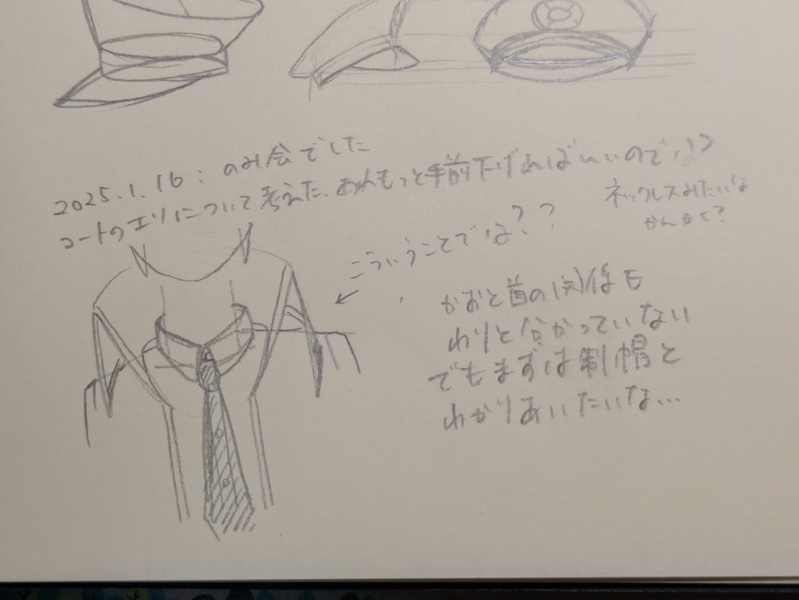 2025.1.16：のみ会でした
コートのエリについて考えた、あれもっと手前だければいいのでは？
ネックレスみたいな
かんかく？
こういうことでは？？
かおと首の関係も
わりと分かっていない
でもまずは制帽と
わかりあいたいな…